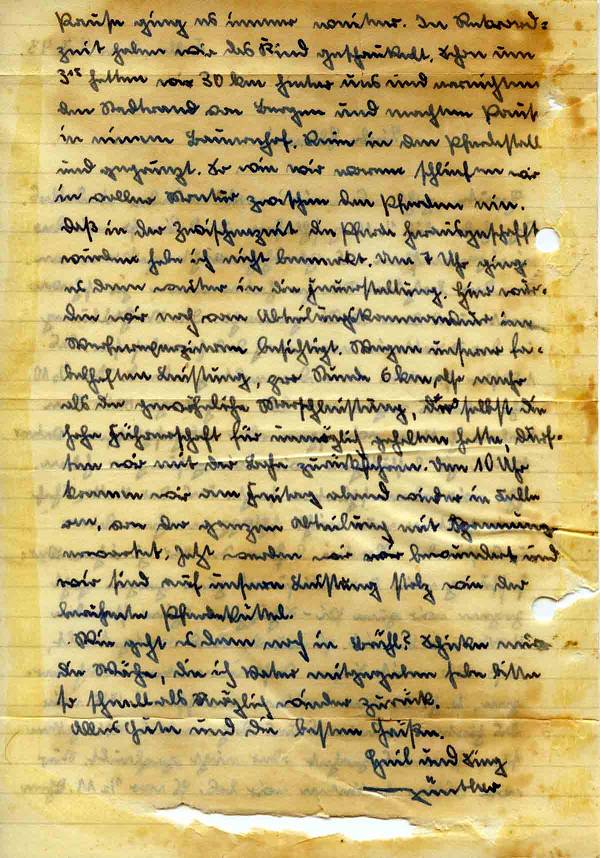 Pause ging es immer weiter. In Rekord=
zeit haben wir das Kind geschaukelt. Schon um
3 hatten wir 30 km hinter uns und erreichten
den Stadtrand von Bergen und machten Rast
in einem Bauernhof. Rein in den Pferdestall
und gegrunzt. So wie wir waren schliefen wir
in voller Montur zwischen den Pferden ein.
Daß in der Zwischenzeit die Pferde herausgeschafft
wurden habe ich nicht bemerkt. Um 7 Uhr ging
es dann weiter in die Feuerstellung. Hier wur=
den wir noch vom Abteilungskommandeur im
besichtigt. Wegen unserer fa=
belhaften Leistung, pro Stunde 6 km, mehr
als die gewöhnliche Marschleistung, die selbst die
hohe Führerschaft für unmöglich gehalten hatte, durf=
ten wir mit der zurückfahren. Um 10 Uhr
kamen wir am Freitag abend wieder in
an, von der ganzen Abteilung mit Spannung
erwartet. Jetzt werden wir bewundert und
wir sind auf unsere Leistung stolz wie der
berühmte Pferdeküttel.
Wie geht es denn noch in Brühl? Schicke mir
die Wäsche, die ich Vater mitgegeben habe bitte
so schnell als möglich wieder zurück.
Alles Gute und die besten Grüße.
Heil und Sieg
Günther